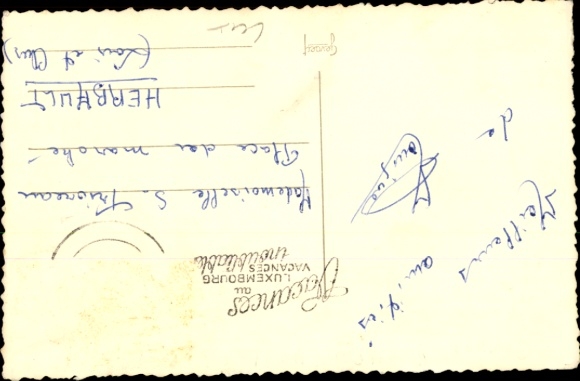 Meilleures
amitiés
de
Vacances
au
LUXEMBOURG
VACANCES
inoubliables
Mademoiselle S. Trioreau
Place du marché
HERBAULT
(Loir et Cher)